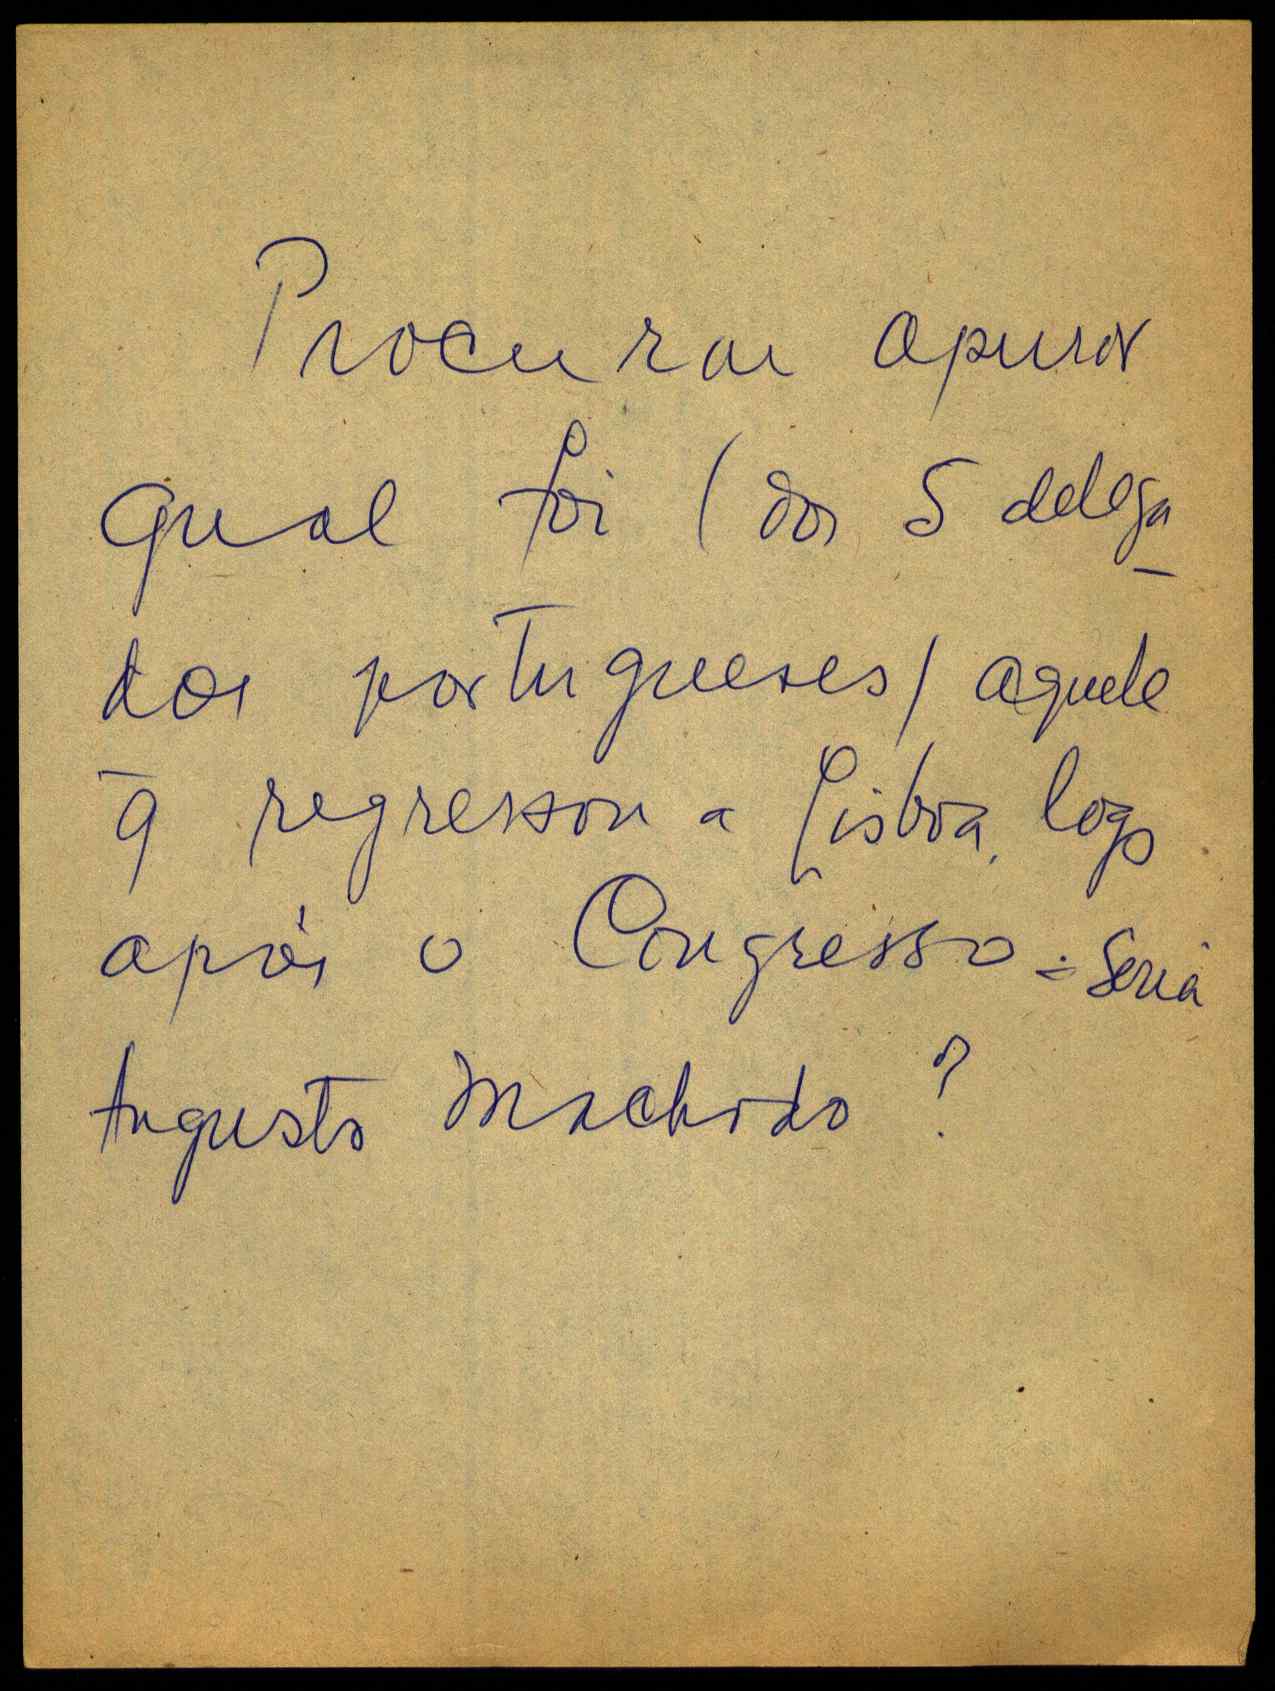 Procurar apurar
qual foi (dos 5 delega-
dos portugueses) aquele
q̄ regressou a Lisboa, logo
após o Congresso - Seria
Augusto Machado ?